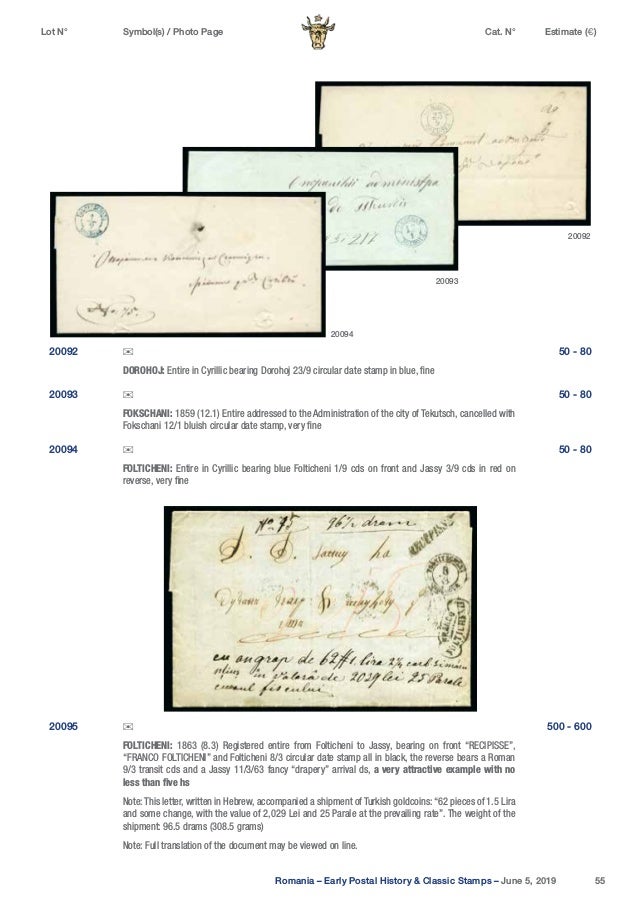 Lot N° Symbol(s) / Photo Page Cat. N° Estimate (€)
20092
20093
20094
20092 50 - 80
DOROHOJ: Entire in Cyrillic bearing Dorohoj 23/9 circular date stamp in blue, fine
20093 50 - 80
FOKSCHANI: 1859 (12.1) Entire addressed to the Administration of the city of Tekutsch, cancelled with
Fokschani 12/1 bluish circular date stamp, very fine
20094 50 - 80
FOLTICHENI: Entire in Cyrillic bearing blue Folticheni 1/9 cds on front and Jassy 3/9 cds in red on
reverse, very fine
No 75 96½ dram
RECIPISSE
FRANCO
FOLTICHENI
cu ongrap de 62 #1 lira
in valoră de 2029 lei 25 Parale
20095 500 - 600
FOLTICHENI: 1863 (8.3) Registered entire from Folticheni to Jassy, bearing on front “RECIPISSE”,
“FRANCO FOLTICHENI” and Folticheni 8/3 circular date stamp all in black, the reverse bears a Roman
9/3 transit cds and a Jassy 11/3/63 fancy “drapery” arrival ds, a very attractive example with no
less than five hs
Note: This letter, written in Hebrew, accompanied a shipment of Turkish goldcoins: “62 pieces of 1.5 Lira
and some change, with the value of 2,029 Lei and 25 Parale at the prevailing rate”. The weight of the
shipment: 96.5 drams (308.5 grams)
Note: Full translation of the document may be viewed on line.
Romania – Early Postal History & Classic Stamps – June 5, 2019 55